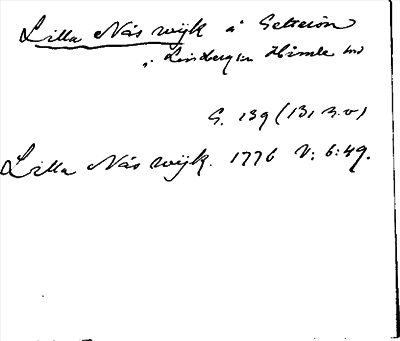 Lilla Näs wijk å Getterön
i Lindberg sn Himle hd
S. 139 (131 n.v)
Lilla Näs wijk. 1776 V: 6:49.